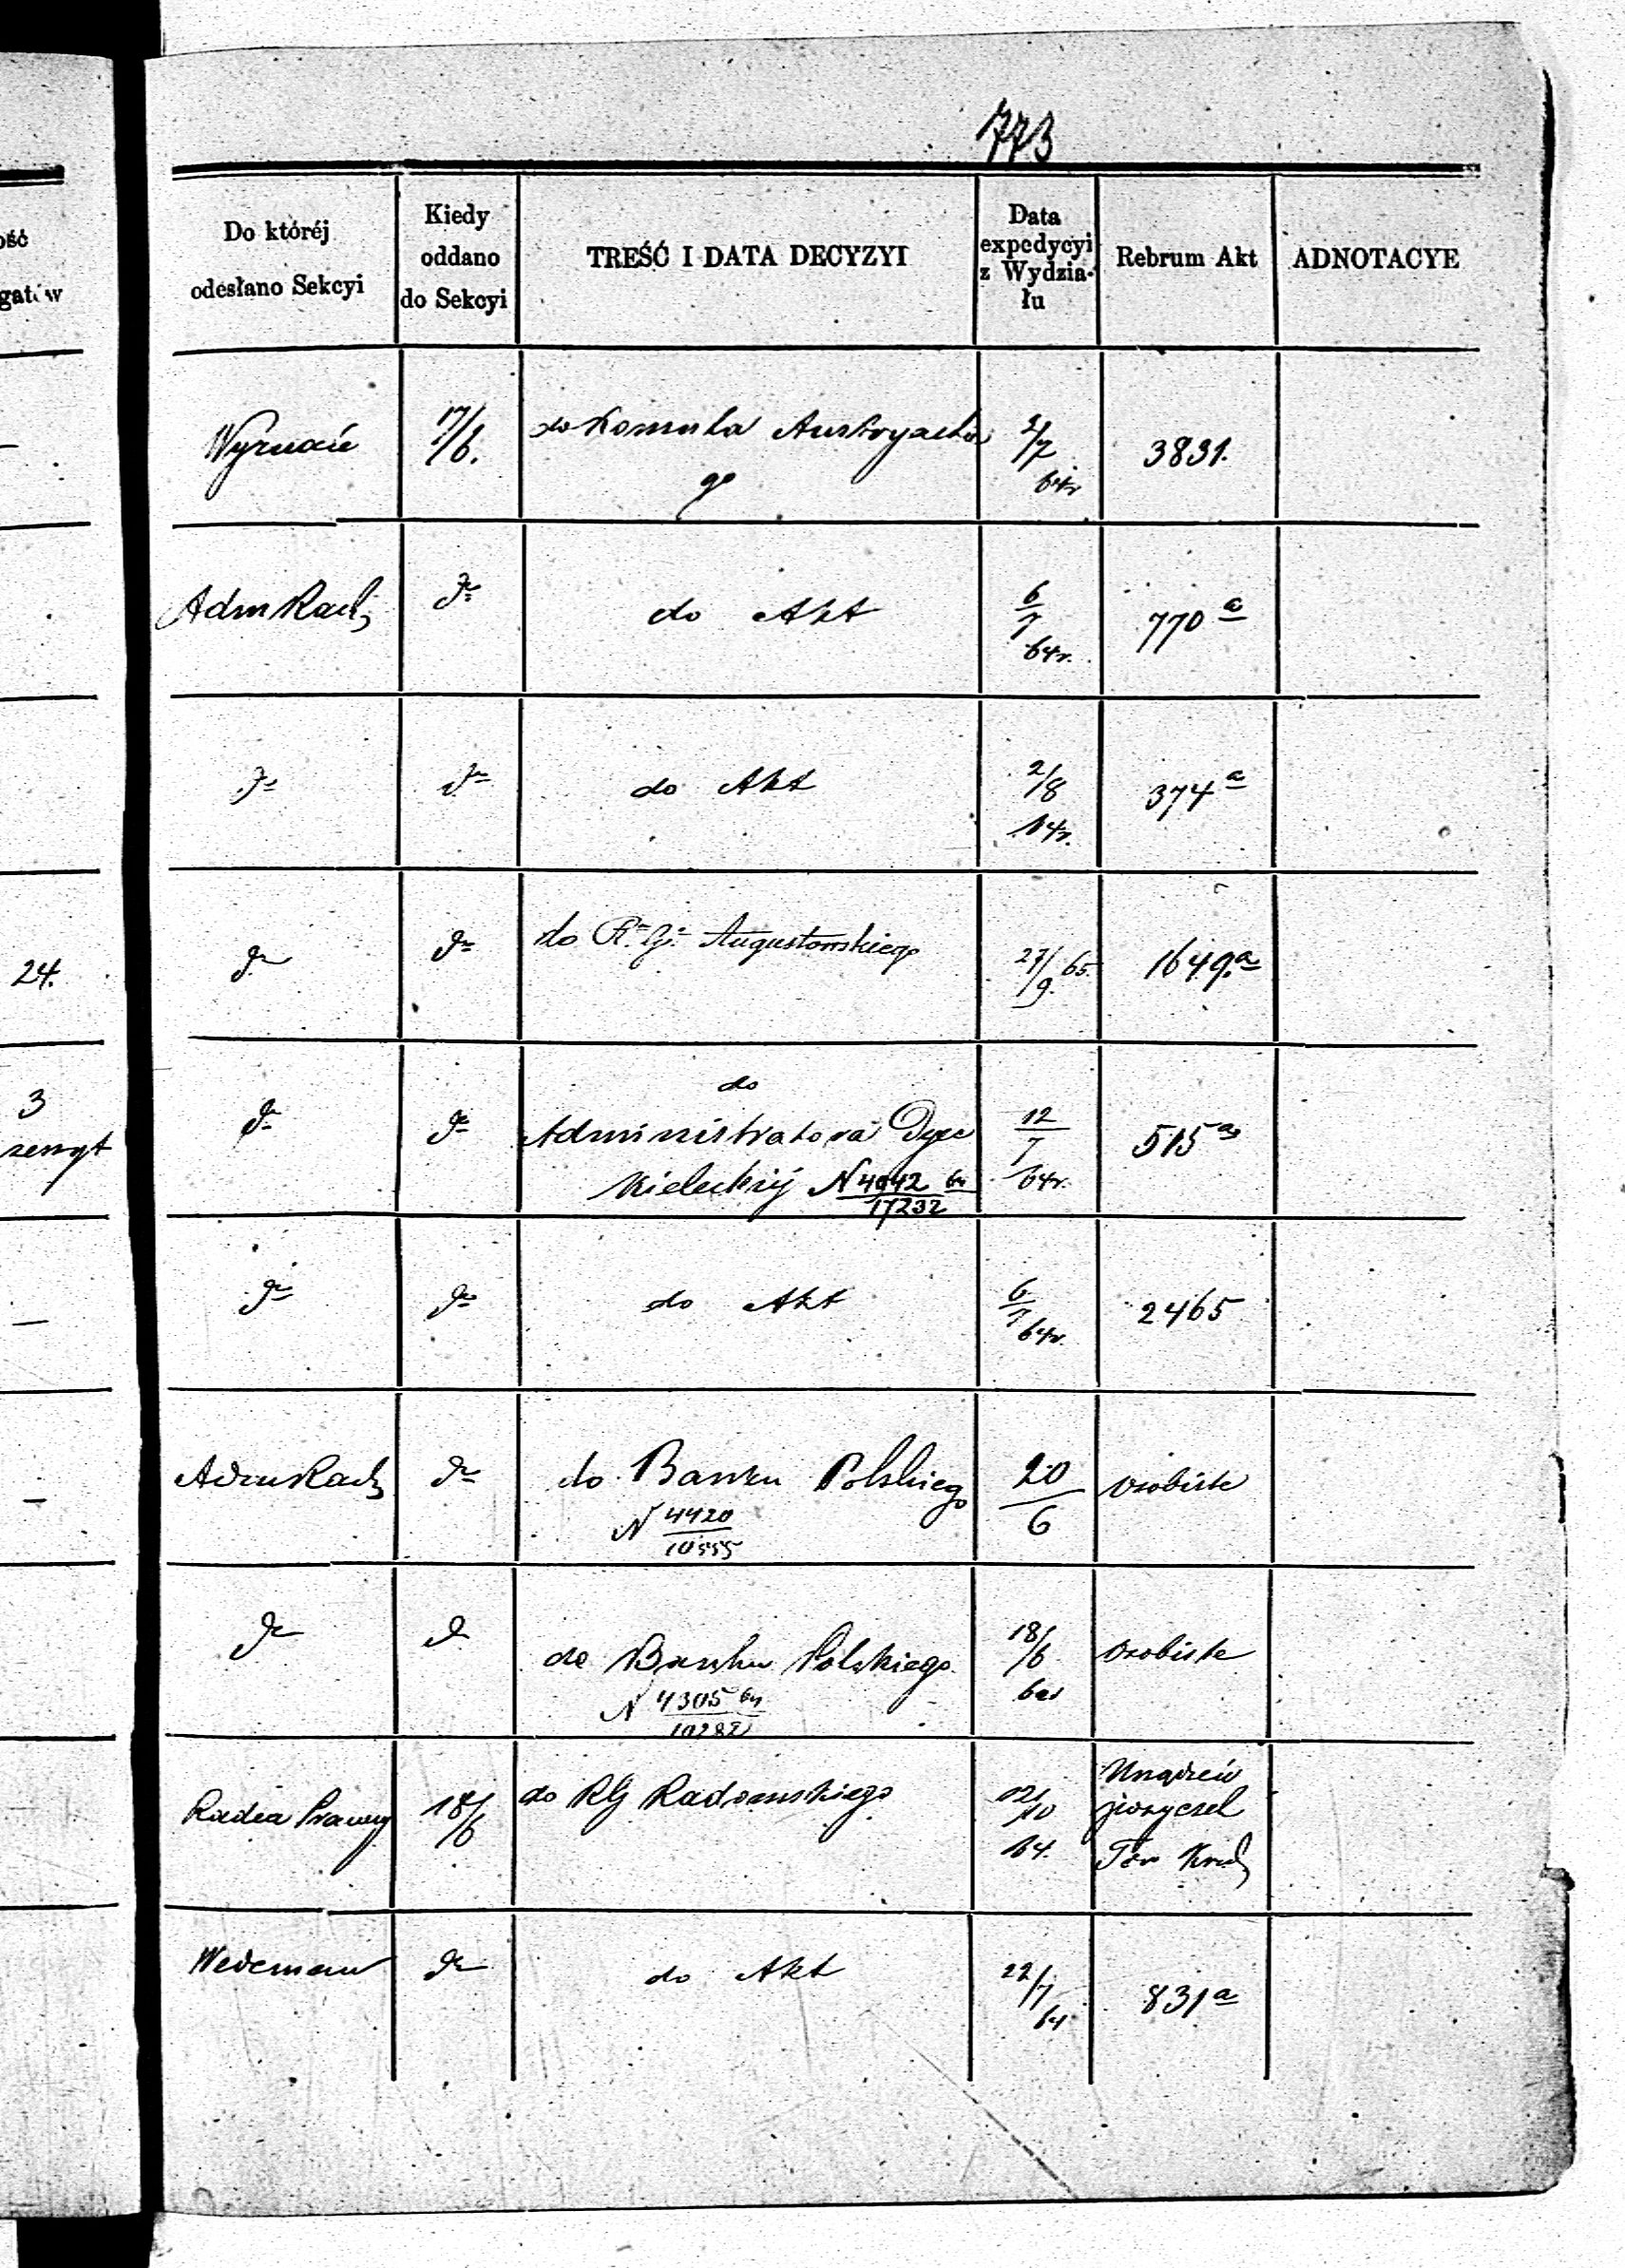 773
ość
gatów
Do któréj
odesłano Sekcyi
Kiedy
oddano
do Sekcyi
TREŚĆ I DATA DECYZYI
Data
expedycyi
z Wydzia-
łu
Rebrum Akt
ADNOTACYE
Wyznań
17/6.
do Konsula Austryackie
go
2/7
64r
3831.
Adm Rach
do
do Akt
6/7
64r.
770 a
do
do
do Akt
2/8
64r.
374 a
24.
do
do
do R. G. Augustowskiego
27/9 65.
1649 a
3
zeszyt
do
do
do
Administratora Dyec
Kieleckiéj N 4942 64
17232
12/7
64r.
515 a
do
do
do Akt
6/7
64r.
2465
Adm Rach
do
do Banku Polskiego
N 4420
10555
20/6
osobiste
do
do
do Banku Polskiego
N 4305 64
10282
18/6
osobiste
Radca Prawny
18/6
do RG Radomskiego
12/10
64.
do
do Akt
22/7
64
831 a